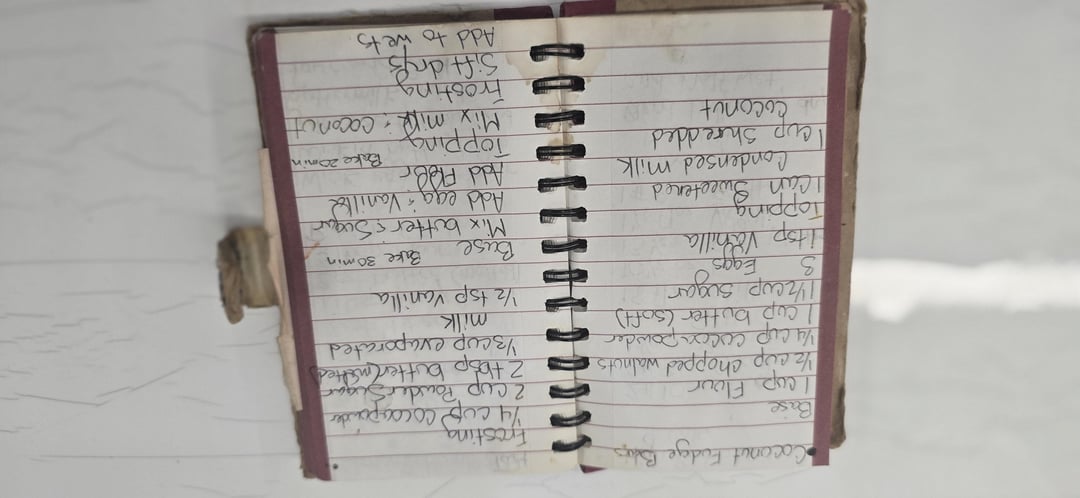 Coconut Fudge Bars
Base
1 cup Flour
1/2 cup chopped walnuts
1/4 cup cocoa powder
1 cup butter (soft)
1 1/2 cup sugar
3 Eggs
1 tsp Vanilla
Topping
1 can Sweetened
Condensed milk
1 cup shredded
Coconut
Frosting
1/4 cup cocoa powder
2 cup Powder Sugar
2 tbsp butter (melted)
1/3 cup evaporated
milk
1/2 tsp vanilla
Base Bake 30 min
Mix butter & Sugar
Add egg & Vanilla
Add Flour
Bake 20 min
Topping
Mix milk & Coconut
Frosting
Sift drys
Add to wets